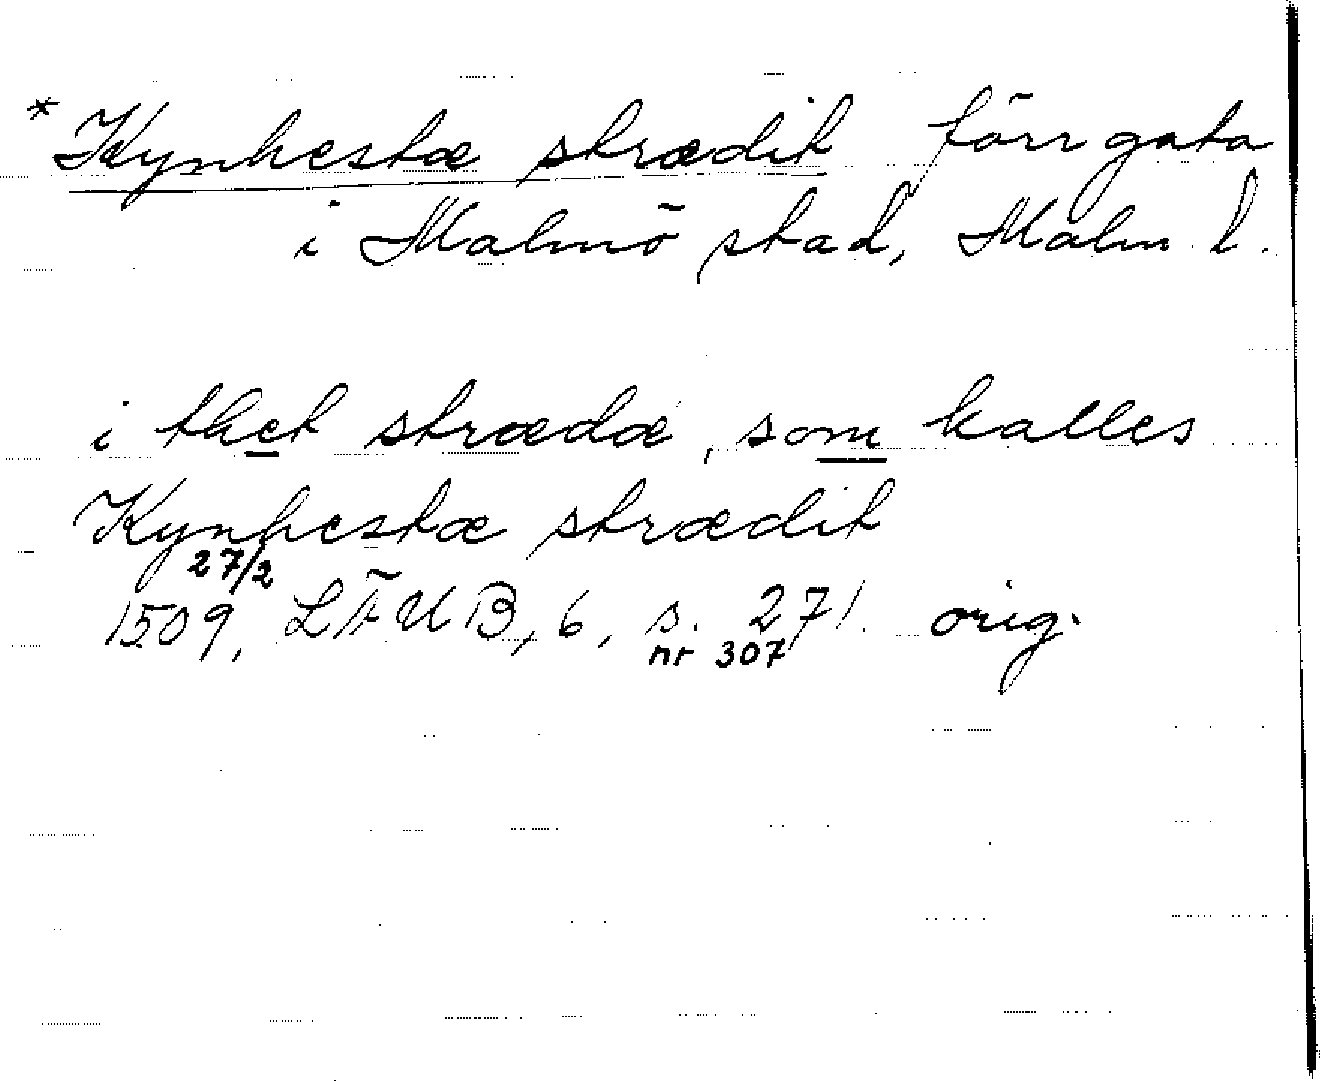 *Kynhestæ strædit förr gata
i Malmö stad, Malm. l.
i thet strædæ, som kalles
Kynhestæ strædit
27/2
1509, LÄUB, 6, s. 271. orig.
nr 307